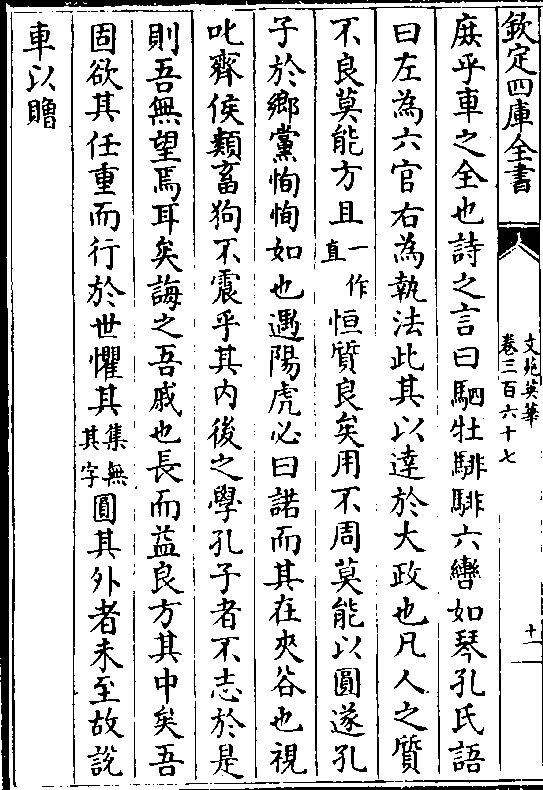 欽定四庫全書
文苑英華
卷三百六十七
十一
庶乎車之全也詩之言曰駟牡騑騑六轡如琴孔氏語
曰左為六官右為執法此其以達於大政也凡人之質
不良莫能方且一作直恒質良矣用不周莫能以圓遂孔
子於鄉黨恂恂如也遇陽虎必曰諾而其在夾谷也視
叱齊侯類畜狗不震乎其内後之學孔子者不志於是
則吾無望焉耳矣誨之吾戚也長而益良方其中矣吾
固欲其任重而行於世懼其集無其字圓其外者未至故說
車以贈